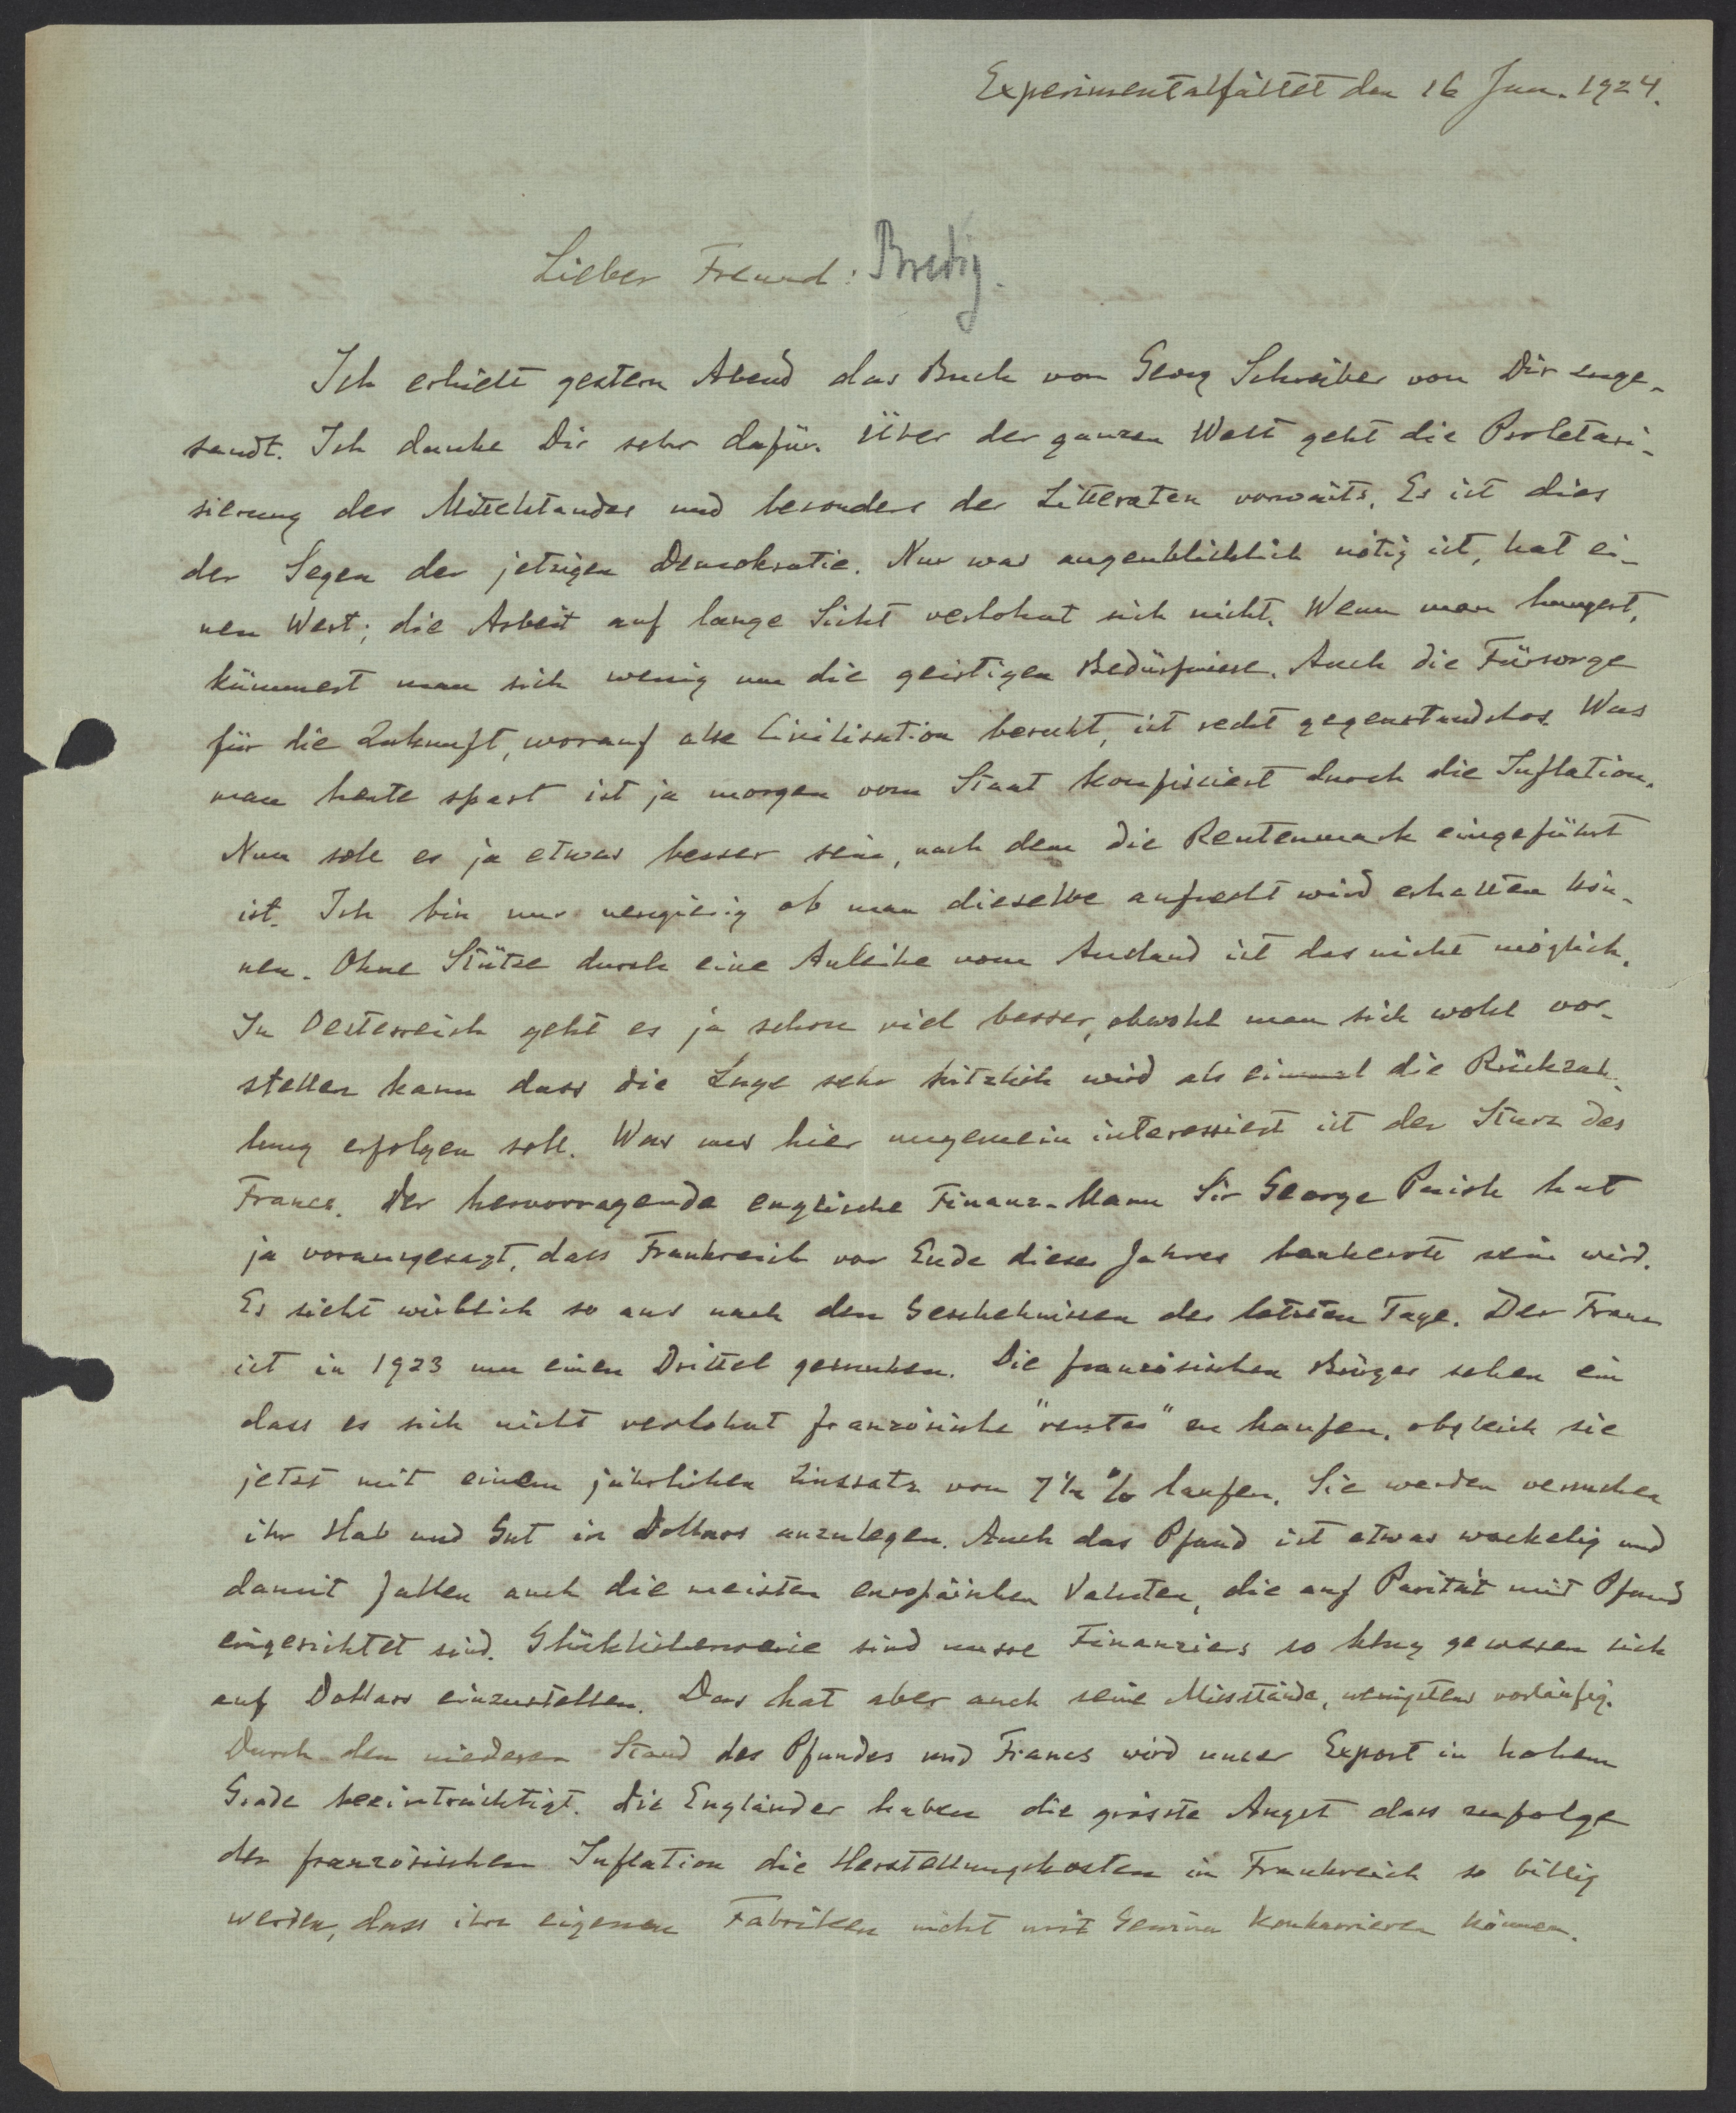 Experimentalfältet den 16 Jan. 1924.
Lieber Freund: Bredig.
Ich erhielt gestern Abend das Buch von Georg Schreiber von Dir enge-
sandt. Ich danke Dir sehr dafür. Über der ganzen Welt geht die Proletari-
sierung des Mittelstandes und besonders der Litteraten vorwärts. Es ist dies
der Segen der jetzigen Demokratie. Nur was augenblicklich nötig ist, hat ei-
nen Wert; die Arbeit auf lange Sicht verlohnt sich nicht. Wenn man hungert,
kümmert man sich wenig um die geistigen Bedürfnisse. Auch die Fürsorge
für die Zukunft, worauf alle Civilisation beruht, ist recht gegenstandslos. Was
man heute spart ist ja morgen vom Staat konfisciert durch die Inflation.
Nun soll es ja etwas besser sein, nach dem die Rentenmark eingeführt
ist. Ich bin nur neugierig ob man dieselbe aufrecht wird erhalten kön-
nen. Ohne Stütze durch eine Anleihe vom Ausland ist das nicht möglich.
In Oesterreich geht es ja schon viel besser, obwohl man sich wohl vor-
stellen kann dass die Lage sehr kitzlich wird als einmal die Rückzah-
lung erfolgen soll. Was uns hier ungemein interessiert ist der Sturz des
Francs. Der hervorragende englische Finanz-Mann Sir George Paish hat
ja vorausgesagt, dass Frankreich vor Ende dieses Jahres bankerott sein wird.
Es sieht wirklich so aus nach den Geschehnissen der letzten Tage. Der Franc
ist in 1923 um einen Drittel gesunken. Die französischen Bürger sehen ein
dass es sich nicht verlohnt französische "rentes" zu kaufen, obgleich sie
jetzt mit einem jährlichen Zinssatz von 7½ % laufen. Sie werden versuchen
ihr Hab und Gut in Dollars anzulegen. Auch das Pfund ist etwas wackelig und
damit fallen auch die meisten europäischen Valuten, die auf Parität mit Pfund
eingerichtet sind. Glücklicherweise sind unsre Financiers so klug gewesen sich
auf Dollars einzustellen. Das hat aber auch seine Missstände, wenigstens vorläufig.
Durch den niederen Stand des Pfundes und Francs wird unser Export in hohem
Grade beeinträchtigt. Die Engländer haben die grösste Angst dass zufolge
der französischen Inflation die Herstellungskosten in Frankreich so billig
werden, dass ihre eigenen Fabriken nicht mit Gewinn konkurrieren können.